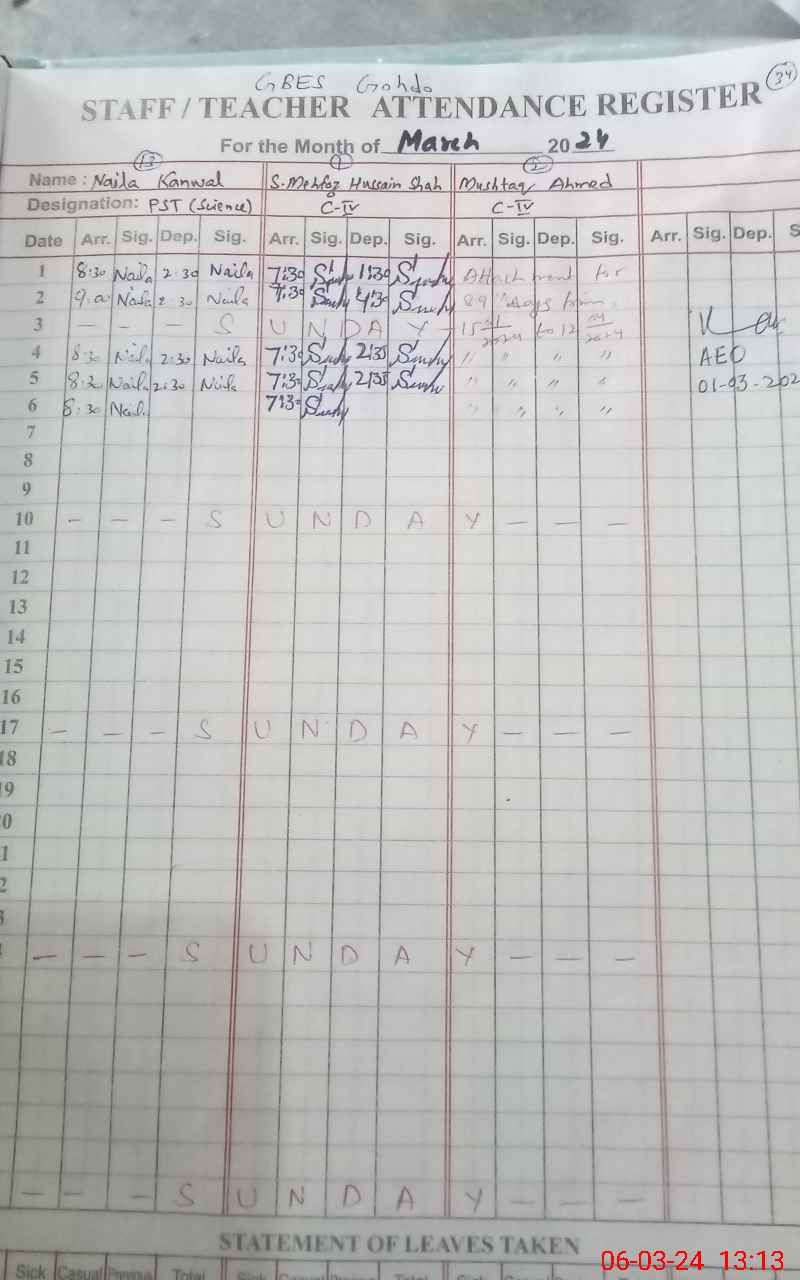 GBES Gohdo
34
STAFF / TEACHER ATTENDANCE REGISTER
For the Month of March 2024
13 1 2
Name : Naila Kanwal S. Mehfoz Hussain Shah Mushtaq Ahmed
Designation: PST (Science) C-IV C-IV
Date Arr. Sig. Dep. Sig. Arr. Sig. Dep. Sig. Arr. Sig. Dep. Sig. Arr. Sig. Dep. S
1 8:30 Naila 2:30 Naila 7:30 1:30 Attachment for
2 Naila 2:30 Naila 7:30 4:30 89 Days from
3 - - - S U N D A Y - 15 2024 to 12 04 2024
4 8:30 Naila 2:30 Naila 7:30 2:35 " " " " AEO
5 8:30 Naila 2:30 Naila 7:30 2:35 " " " " 01-03-202
6 8:30 Naila 7:30 " " " "
7
8
9
10 - - - S U N D A Y - - -
11
12
13
14
15
16
17 - - - S U N D A Y - - -
18
19
0
1
2
3
- - - S U N D A Y - - -
- - - S U N D A Y - - -
STATEMENT OF LEAVES TAKEN
Sick Casual Previous Total Sick Casual Total
06-03-24 13:13